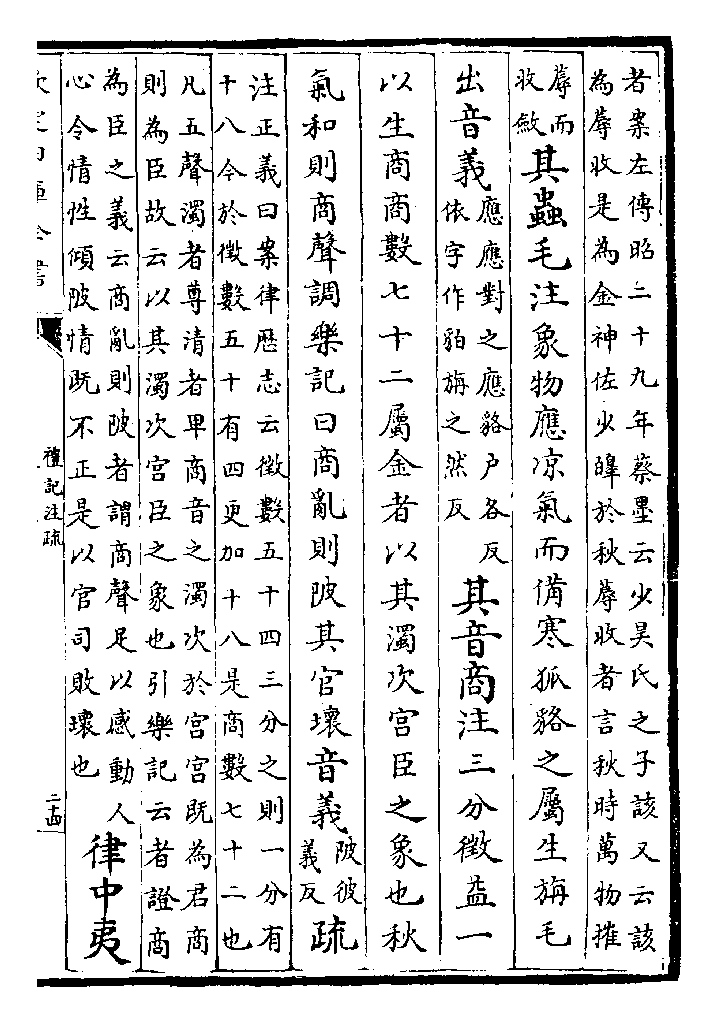 者案左傳昭二十九年蔡墨云少昊氏之子該又云該
為蓐收是為金神佐少皞於秋蓐收者言秋時萬物摧
蓐而
收斂
其蟲毛注象物應凉氣而備寒狐貉之屬生旃毛
出音義
應應對之應貉户各反
依字作貃旃之然反
其音商注三分徵益一
以生商商數七十二屬金者以其濁次宫臣之象也秋
氣和則商聲調樂記曰商亂則陂其官壞音義
陂彼
義反
疏
注正義曰案律厯志云徵數五十四三分之則一分有
十八今於徵數五十有四更加十八是商數七十二也
凡五聲濁者尊清者卑商音之濁次於宫宫既為君商
則為臣故云以其濁次宫臣之象也引樂記云者證商
為臣之義云商亂則陂者謂商聲足以感動人
心令情性傾陂情既不正是以官司敗壞也
律中夷
禮記注疏
二十四